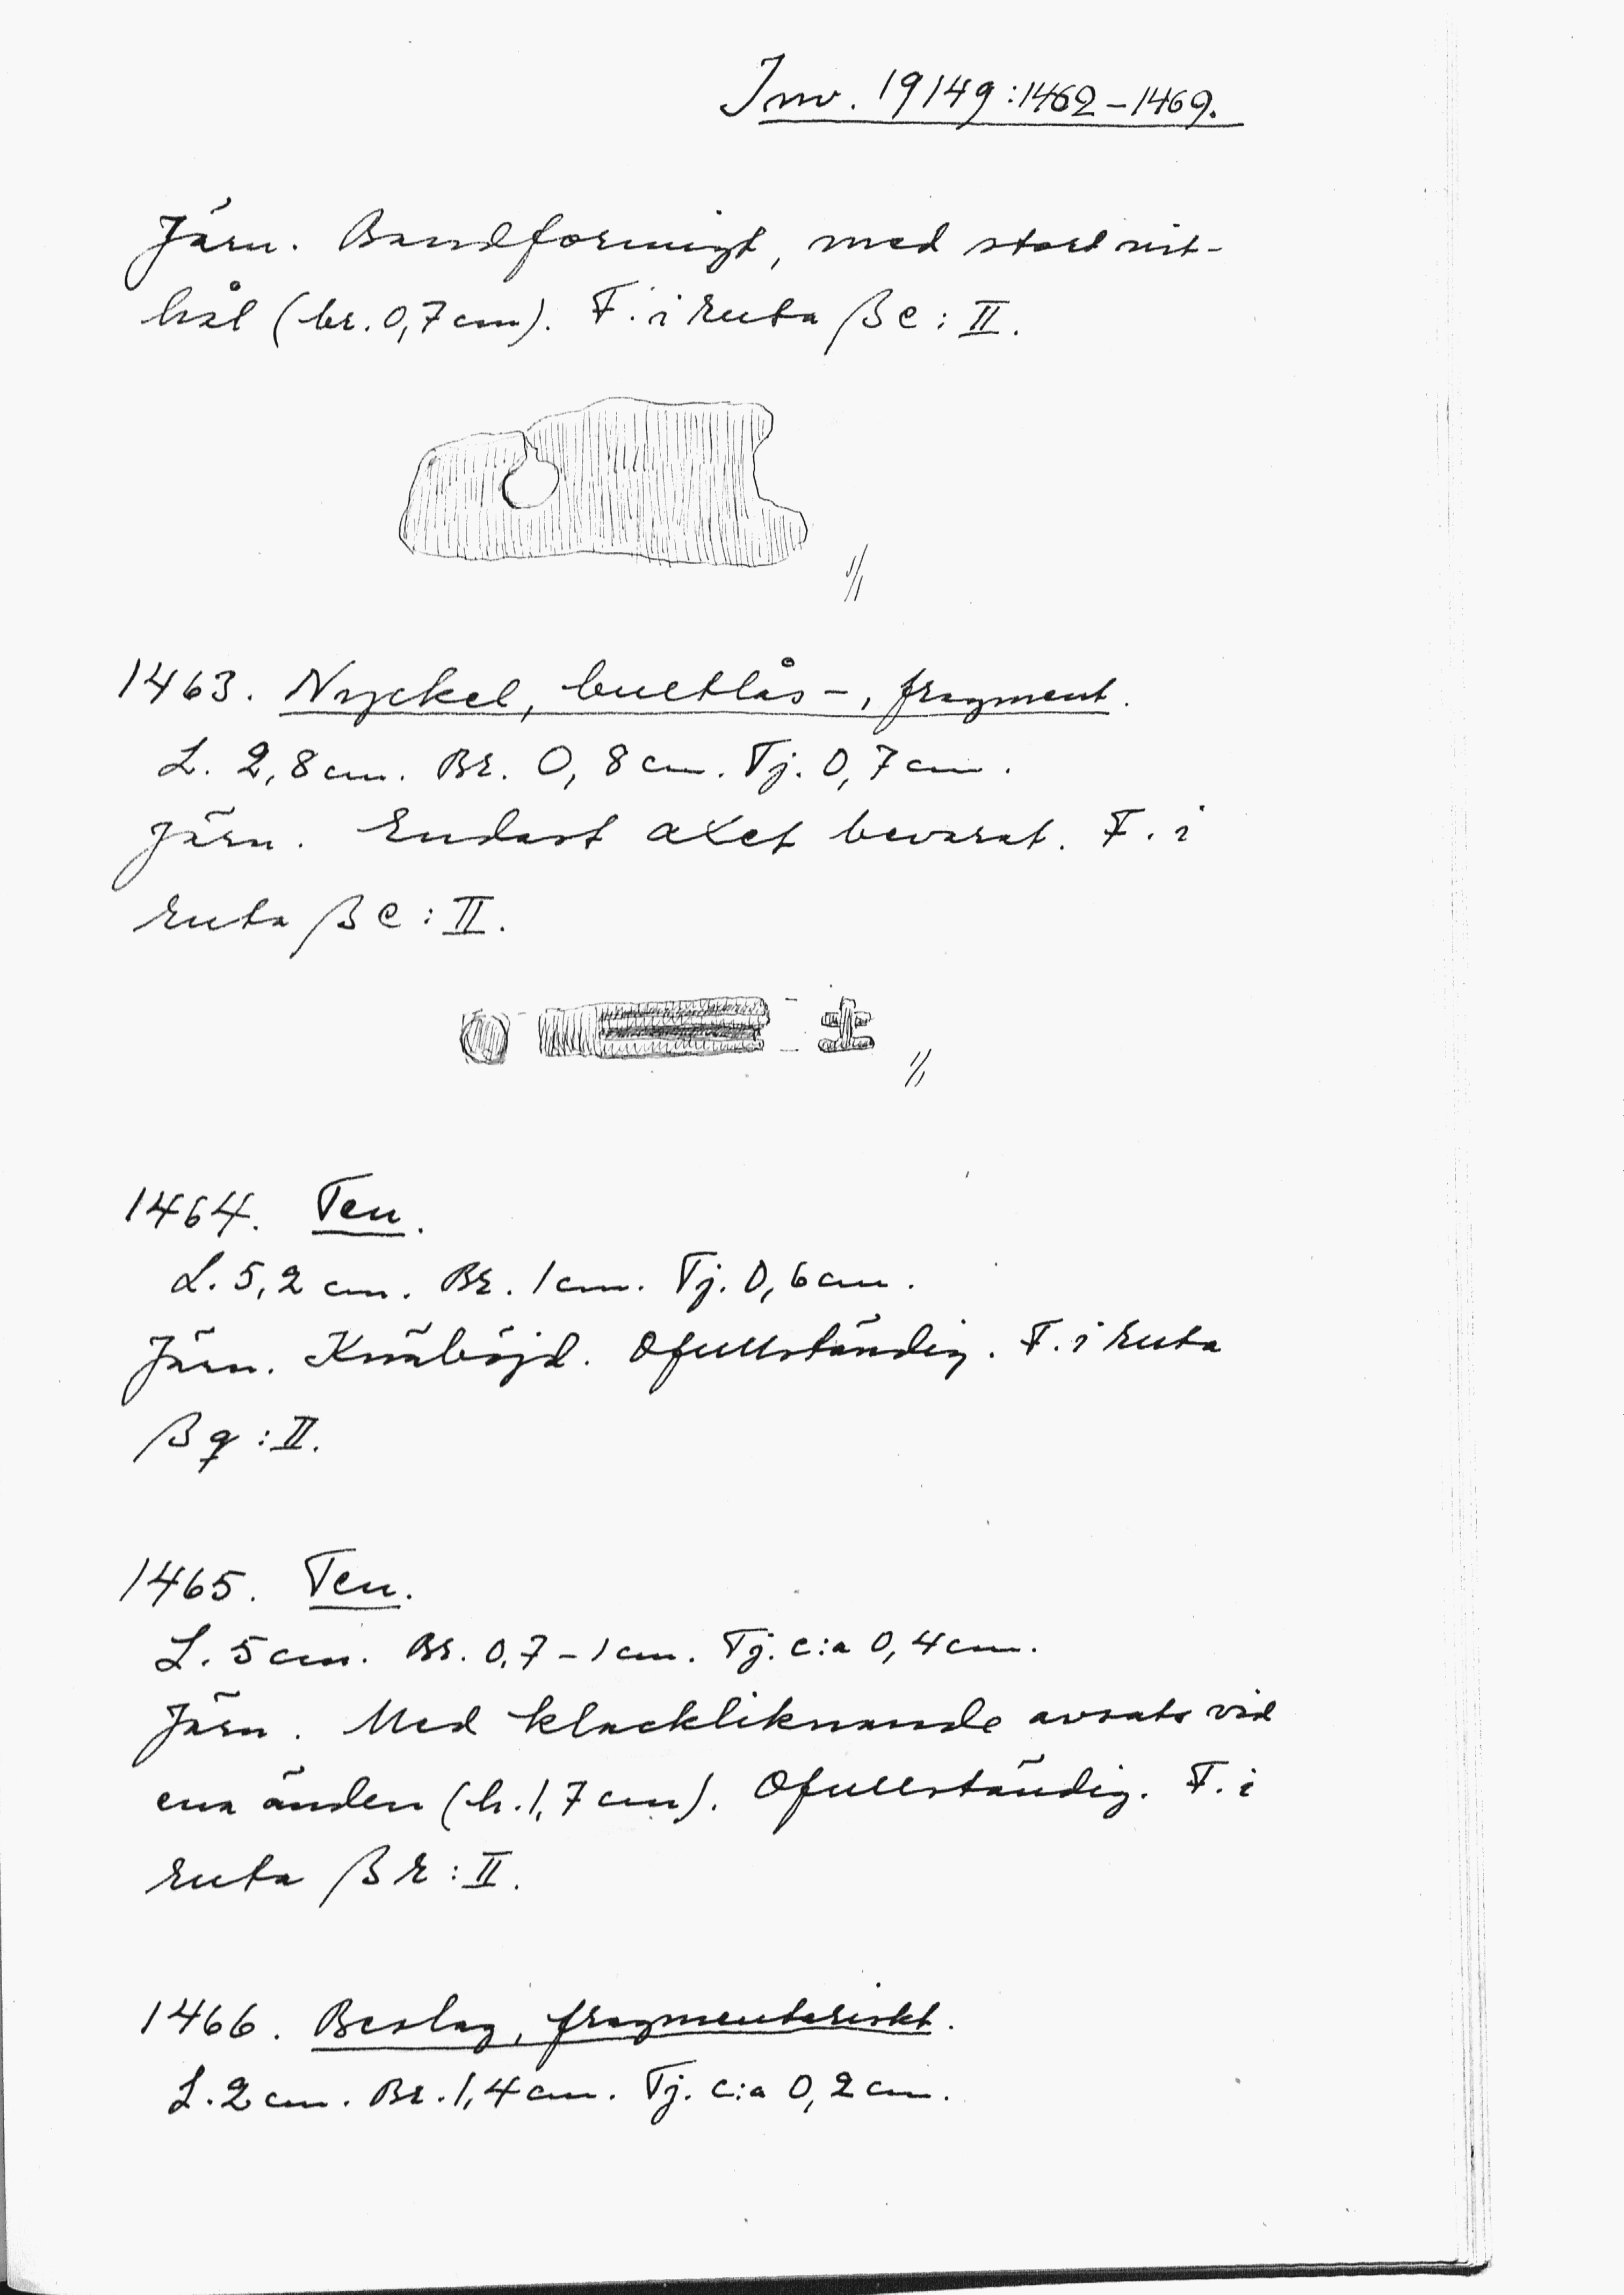 Inv. 19149:1462-1469.
Järn. Bandformigt, med stort nit-
hål (br. 0,7 cm). F. i ruta βc: II.
1/1
1463. Nyckel, bultlås-, fragment.
L. 2,8 cm. Br. 0,8 cm. Tj. 0,7 cm.
Järn. Endast axet bevarat. F. i
ruta βc: II.
1/1
1464. Ten.
L. 5,2 cm. Br. 1 cm. Tj. 0,6 cm.
Järn. Knäböjd. Ofullständig. F. i ruta
βq: II.
1465. Ten.
L. 5 cm. Br. 0,7-1 cm. Tj. c:a 0,4 cm.
Järn. Med klackliknande avsats vid
ena änden (h. 1,7 cm). Ofullständig. F. i
ruta βr: II.
1466. Beslag, fragmentariskt.
L. 2 cm. Br. 1,4 cm. Tj. c:a 0,2 cm.